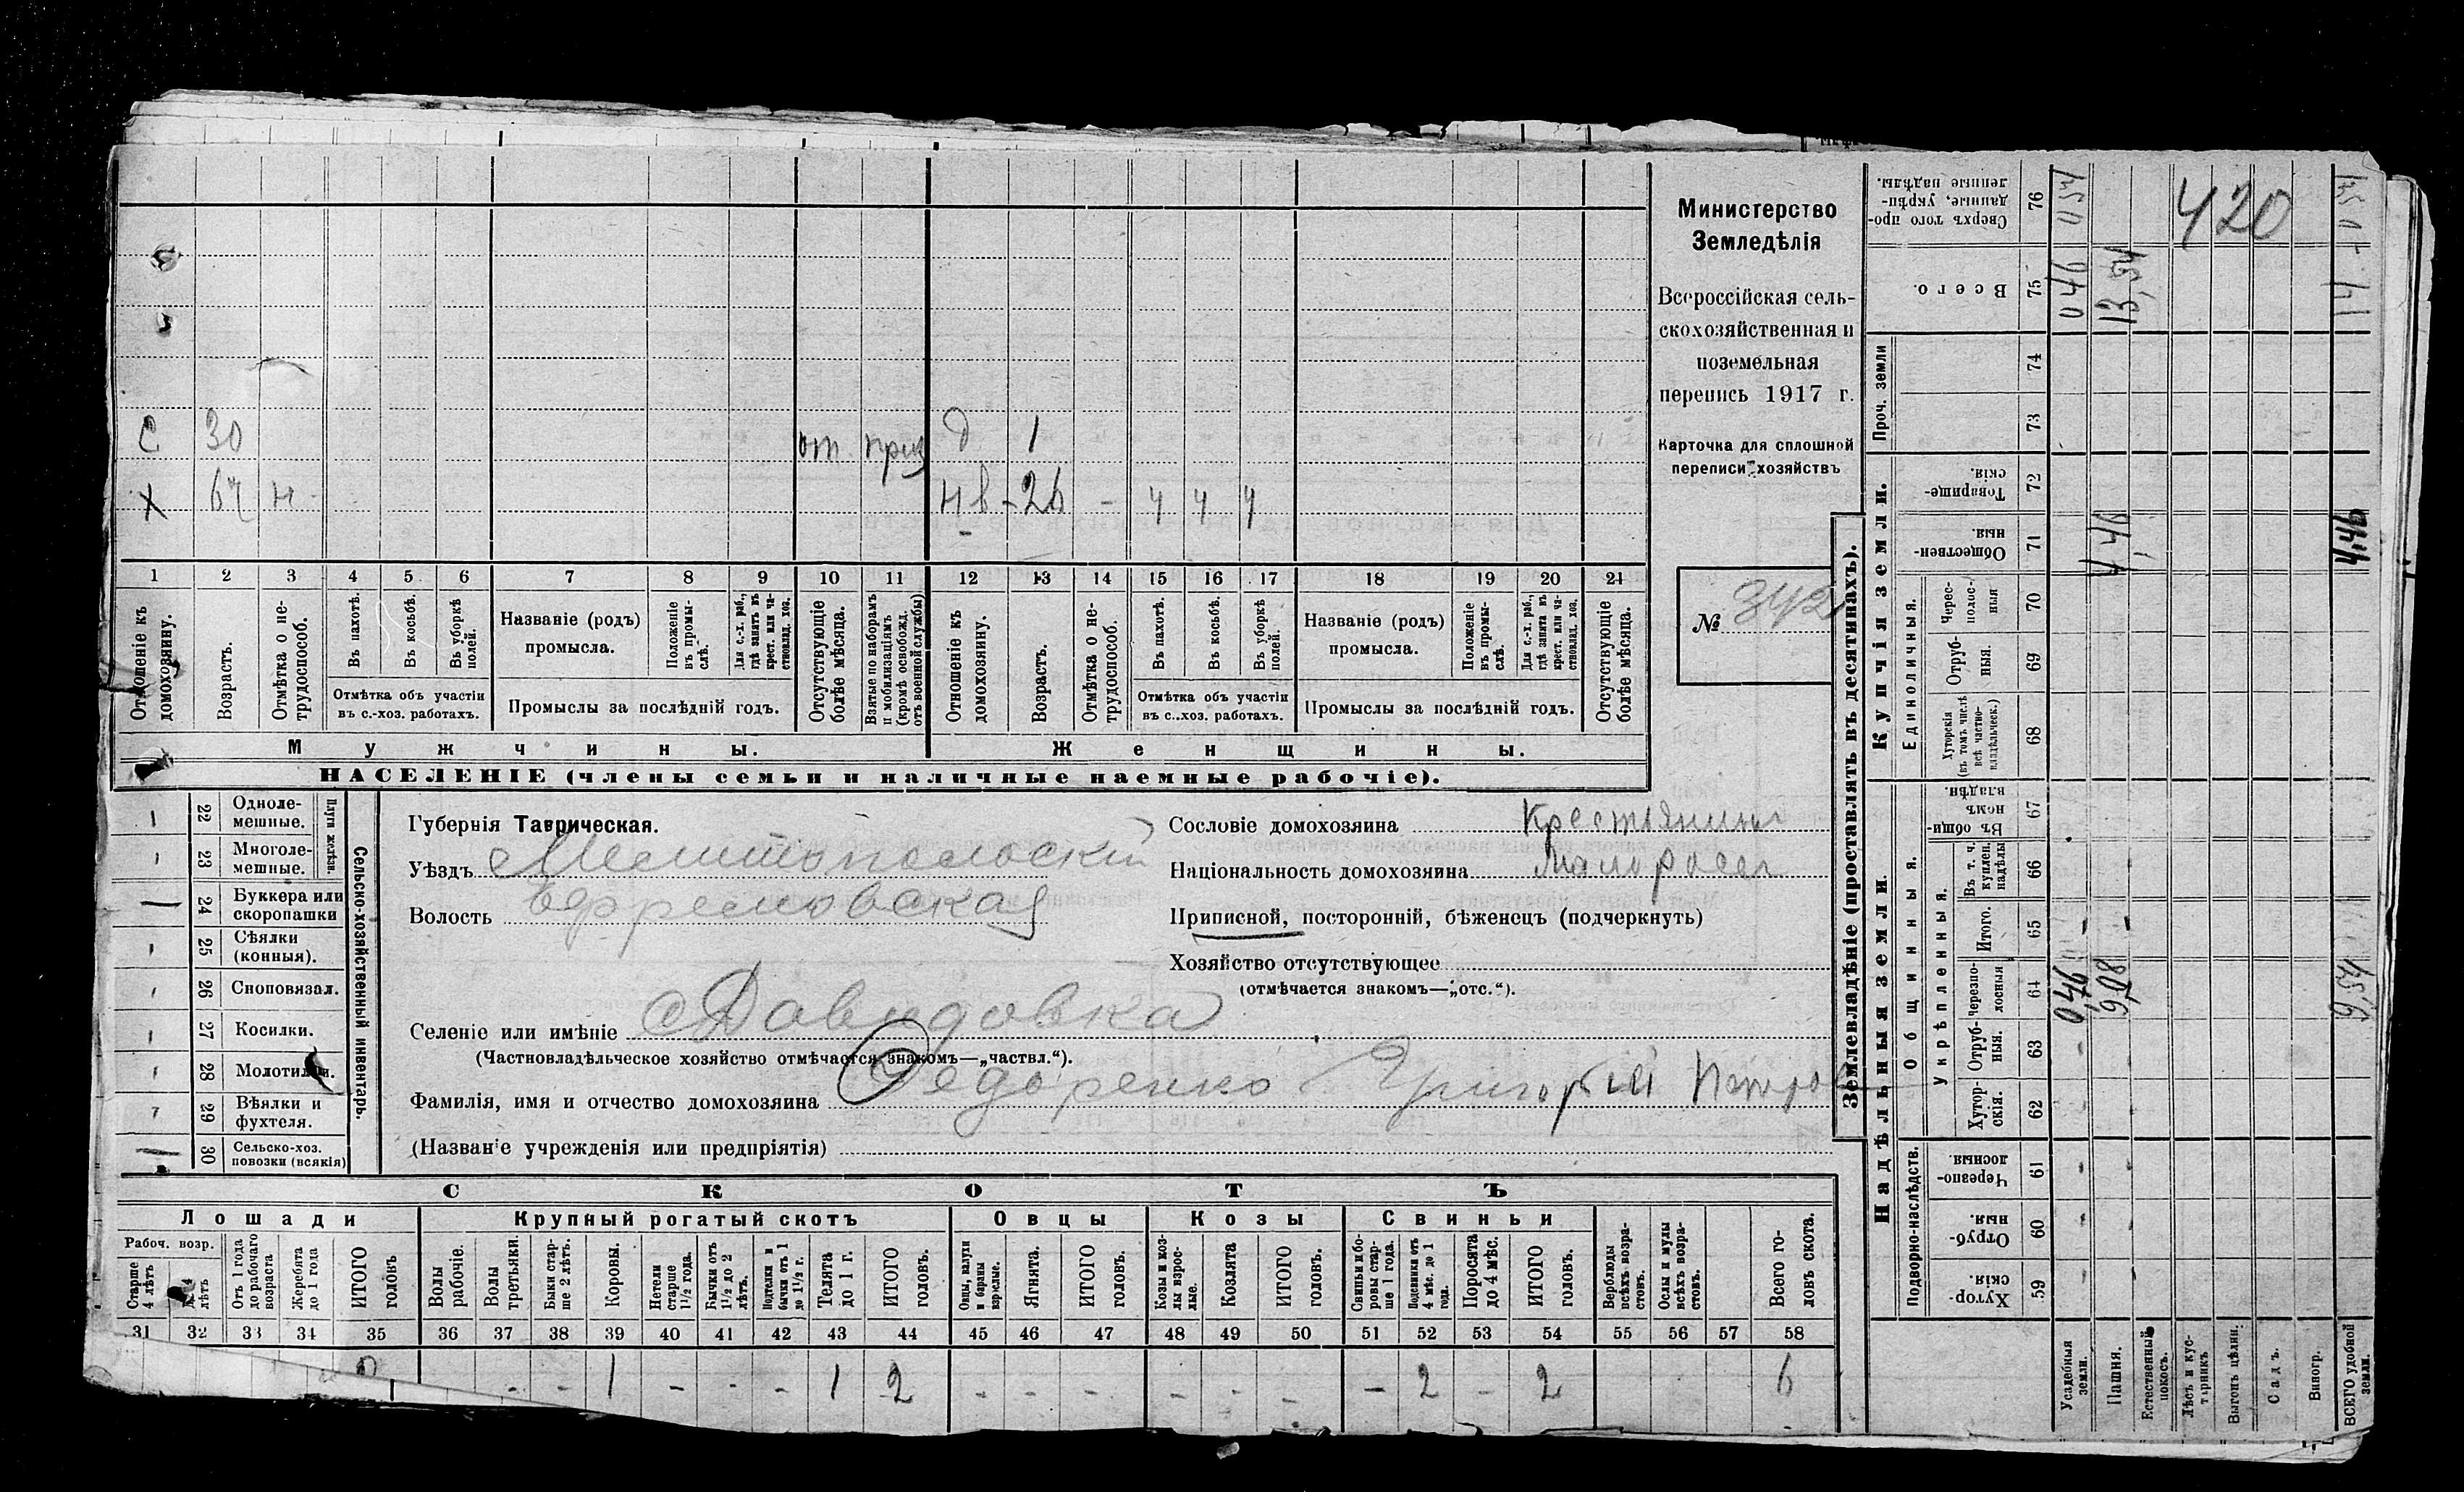 С 30 от приз д 1
Х 67 н - нв - 26 - ч ч ч
1 2 3 4 5 6 7 8 9 10 11 12 13 14 15 16 17 18 19 20 21
Отношеніе къ домохозяину.
Возрастъ.
Отмѣтка о не-
трудоспособ.
Въ пахотѣ.
Въ косьбѣ.
Въ уборкѣ
полей.
Отмѣтка объ участіи
въ с.-хоз. работахъ.
Названіе (родъ)
промысла.
Положеніе
въ промы-
слѣ.
Для с.-х. раб.,
гдѣ занятъ въ
крест. или ча-
стновлад. хоз.
Промыслы за послѣдній годъ.
Отсутствующіе
болѣе мѣсяца.
Взятые по наборамъ
и мобилизаціямъ
(кромѣ освобожд.
отъ военной службы)
Отношеніе къ
домохозяину.
Возрастъ.
Отмѣтка о не-
трудоспособ.
Въ пахотѣ.
Въ косьбѣ.
Въ уборкѣ
полей.
Отмѣтка объ участіи
въ с..хоз. работахъ.
Названіе (родъ)
промысла.
Положеніе
въ промы-
слѣ.
Для с.-х. раб.,
гдѣ занята въ
крест. или ча-
стновлад. хоз.
Промыслы за послѣдній годъ.
Отсутствующіе
болѣе мѣсяца.
Мужчины. Женщины.
НАСЕЛЕНІЕ (члены семьи и наличные наемные рабочіе).
Министерство
Земледѣлія
Всероссійская сель-
скохозяйственная и
поземельная
перепись 1917 г.
Карточка для сплошной
переписи хозяйствъ
№ 342
22 Одноле-
мешные.
23 Многоле-
мешные.
Плуги желѣзн.
24 Буккера или
скоропашки
25 Сѣялки
(конныя).
26 Сноповязал.
27 Косилки.
28 Молотилки.
29 Вѣялки и
фухтеля.
30 Сельско-хоз.
повозки (всякія)
Сельско-хозяйственный инвентарь.
Губернія Таврическая.
Уѣздъ Мелитопольскій
Волость Ефремовская
Селеніе или имѣніе Давидовка
(Частновладѣльческое хозяйство отмѣчается знакомъ—„частвл.“).
Фамилія, имя и отчество домохозяина Федоренко Григорій Петров
(Названіе учрежденія или предпріятія)
Сословіе домохозяина Крестьянинъ
Національность домохозяина Малоросъ
Приписной, посторонній, бѣженецъ (подчеркнуть)
Хозяйство отсутствующее
(отмѣчается знакомъ—„отс.“).
СКОТЪ
Лошади Крупный рогатый скотъ Овцы Козы Свиньи
Рабоч. возр.
Старше
4 лѣтъ
лѣтъ
Отъ 1 года
до рабочаго
возраста
Жеребята
до 1 года
ИТОГО
головъ
Волы
рабочіе.
Волы
третьяки.
Быки стар-
ше 2 лѣтъ.
Коровы.
Нетели
старше
1½ года.
Бычки отъ
1½ до 2
лѣтъ.
Подтелки и
бычки отъ 1
до 1½ г.
Телята
до 1 г.
ИТОГО
головъ.
Овцы, валухи
и бараны
взрослые.
Ягнята.
ИТОГО
головъ.
Козы и коз-
лы взрос-
лые.
Козлята
ИТОГО
головъ.
Свиньи и бо-
ровы стар-
ше 1 года.
Подсвинки отъ
4 мѣс. до 1
года.
Поросята
до 4 мѣс.
ИТОГО
головъ.
Верблюды
всѣхъ возра-
стовъ.
Ослы и мулы
всѣхъ возра-
стовъ.
Всего го-
ловъ скота.
31 32 33 34 35 36 37 38 39 40 41 42 43 44 45 46 47 48 49 50 51 52 53 54 55 56 57 58
- - 1 - - - 1 2 - - - - - - - 2 - 2 6
Землевладѣніе (проставлять въ десятинахъ).
Надѣльныя земли. Купчія земли. Проч. земли
Подворно-наслѣдств. Общинныя. Единоличныя.
Укрѣпленныя.
Хутор-
скія. 59
Отруб-
ныя. 60
Черезпо-
лосныя. 61
Хутор-
скія. 62
Отруб-
ныя. 63
Черезпо-
лосныя 64
Итого. 65
Въ т. ч.
куплен.
надѣлы 66
Въ общин-
номъ
владѣн. 67
Хуторскія
(въ томъ числѣ
всѣ частно-
владѣльческ.) 68
Отруб-
ныя. 69
Черес-
полос-
ныя 70
Обществен-
ныя 71
Товарище-
скія. 72
73
74
Всего. 75
Сверхъ того про-
данные, укрѣп-
ленные надѣлы. 76
Усадебныя
земли. 0,46 046 054
Пашня. 9,08 4,46 13,54
Естественный
покосъ.
Лѣсъ и кус-
тарникъ
Выгонъ цѣлин.
Садъ.
Виногр.
ВСЕГО удобной
земли. 9,54 4,46 14 054
420